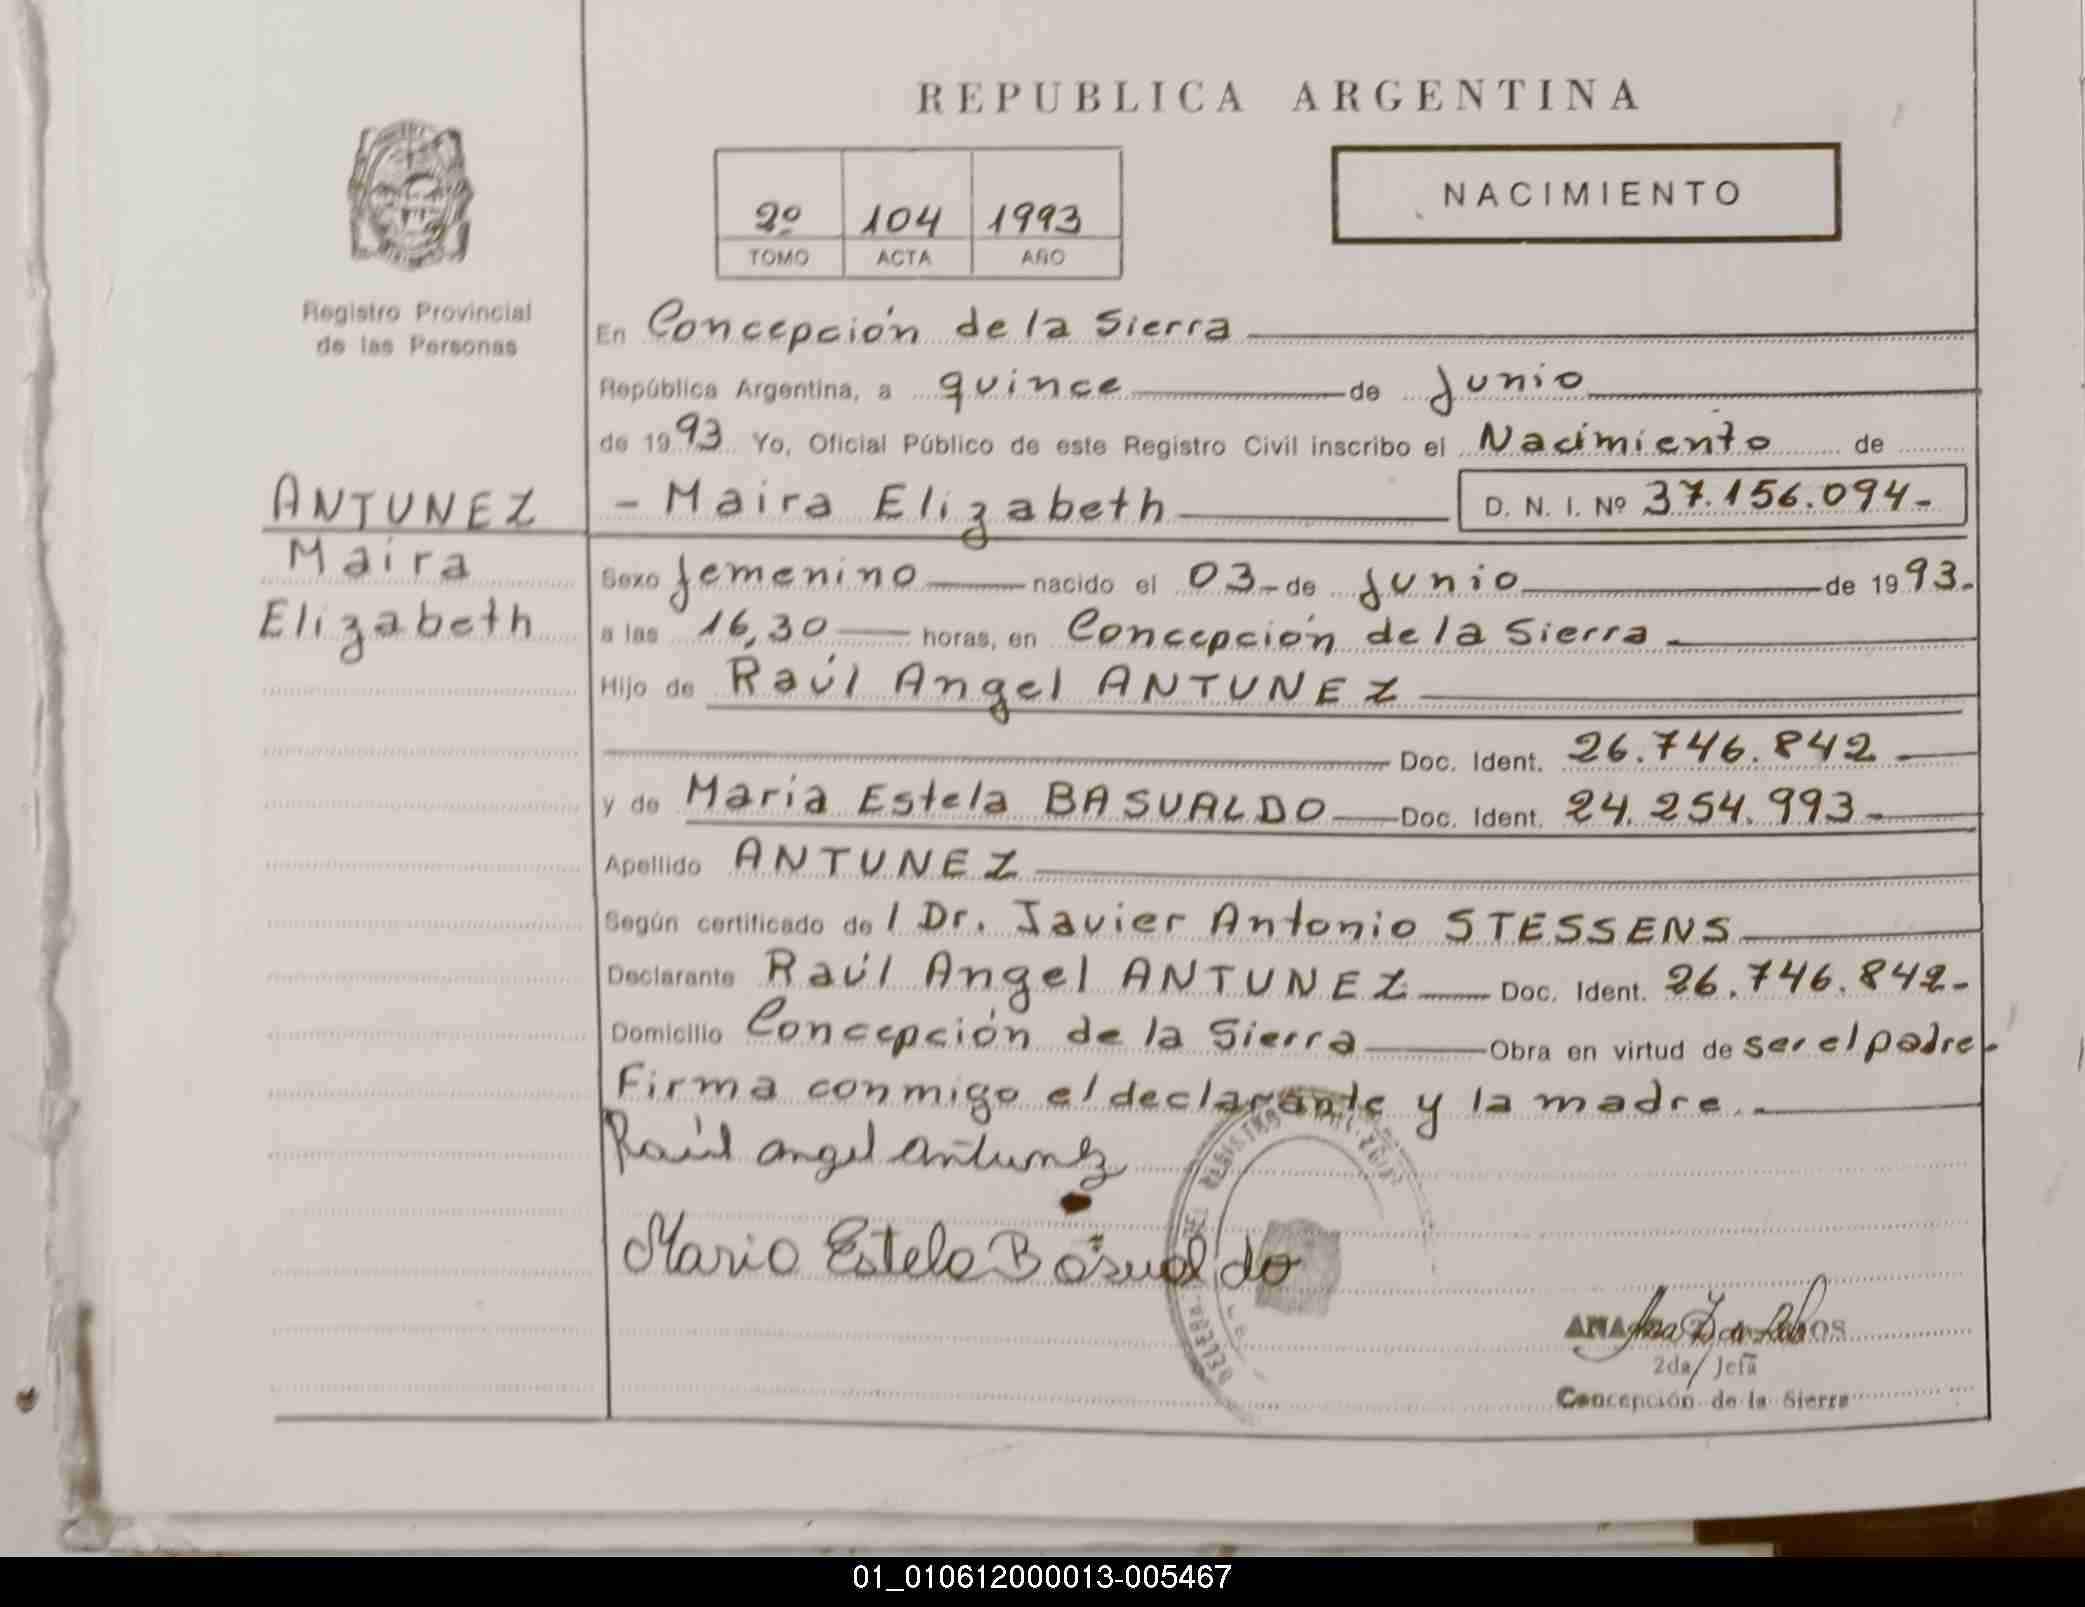 REPUBLICA ARGENTINA
NACIMIENTO
2º 104 1993
TOMO ACTA AÑO
Registro Provincial
de las Personas
En Concepción de la Sierra
República Argentina, a quince de Junio
de 1993 Yo, Oficial Público de este Registro Civil inscribo el Nacimiento de
ANTUNEZ
Maira
Elizabeth
- Maira Elizabeth D. N. I. Nº 37.156.094-
Sexo femenino nacido el 03- de Junio de 1993.
a las 16,30 horas, en Concepción de la Sierra
Hijo de Raúl Angel ANTUNEZ
Doc. Ident. 26.746.842
y de Maria Estela BASUALDO Doc. Ident. 24.254.993
Apellido ANTUNEZ
Según certificado de l Dr. Javier Antonio STESSENS
Declarante Raúl Angel ANTUNEZ Doc. Ident. 26.746.842-
Domicilio Concepción de la Sierra Obra en virtud de ser el padre.
Firma conmigo el declarante y la madre.
Raúl angel antunez
Maria Estela Basualdo
REGISTRO
ANA
2da/ Jefa
Concepción de la Sierra
01_010612000013-005467